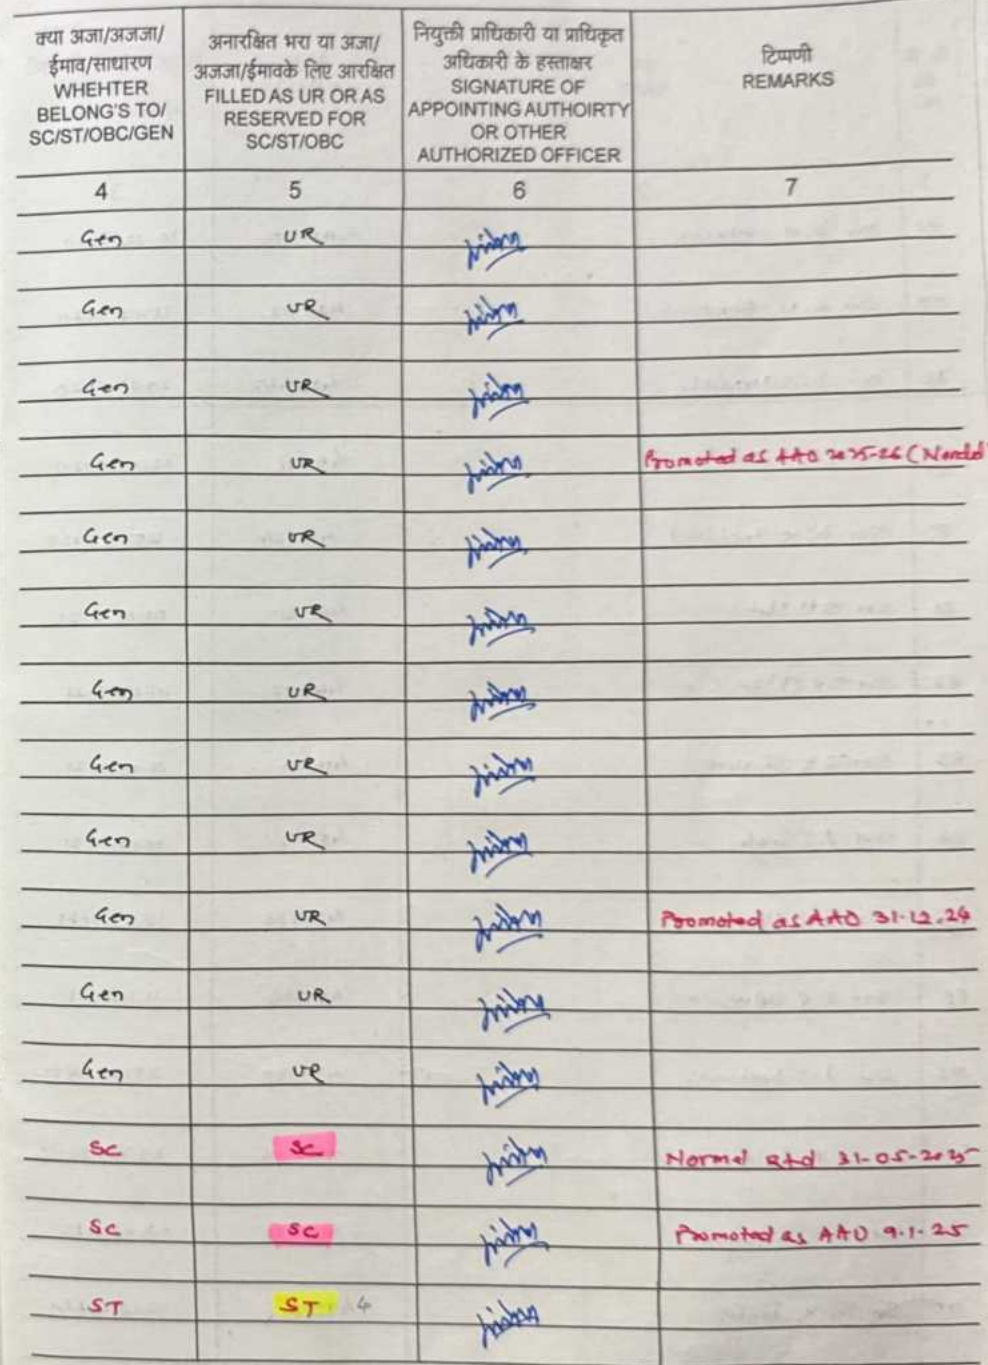 क्या अजा/अजजा/
ईमाव/साधारण
WHEHTER
BELONG'S TO/
SC/ST/OBC/GEN
अनारक्षित भरा या अजा/
अजजा/ईमावके लिए आरक्षित
FILLED AS UR OR AS
RESERVED FOR
SC/ST/OBC
नियुक्ती प्राधिकारी या प्राधिकृत
अधिकारी के हस्ताक्षर
SIGNATURE OF
APPOINTING AUTHOIRTY
OR OTHER
AUTHORIZED OFFICER
टिप्पणी
REMARKS
4 5 6 7
Gen UR
Gen UR
Gen UR
Gen UR Promoted as AAO 2025-26
Gen UR
Gen UR
Gen UR
Gen UR
Gen UR
Gen UR Promoted as AAO 31-12-24
Gen UR
Gen UR
SC SC Normal Rtd 31-05-2025
SC SC Promoted as AAO 9-1-25
ST ST